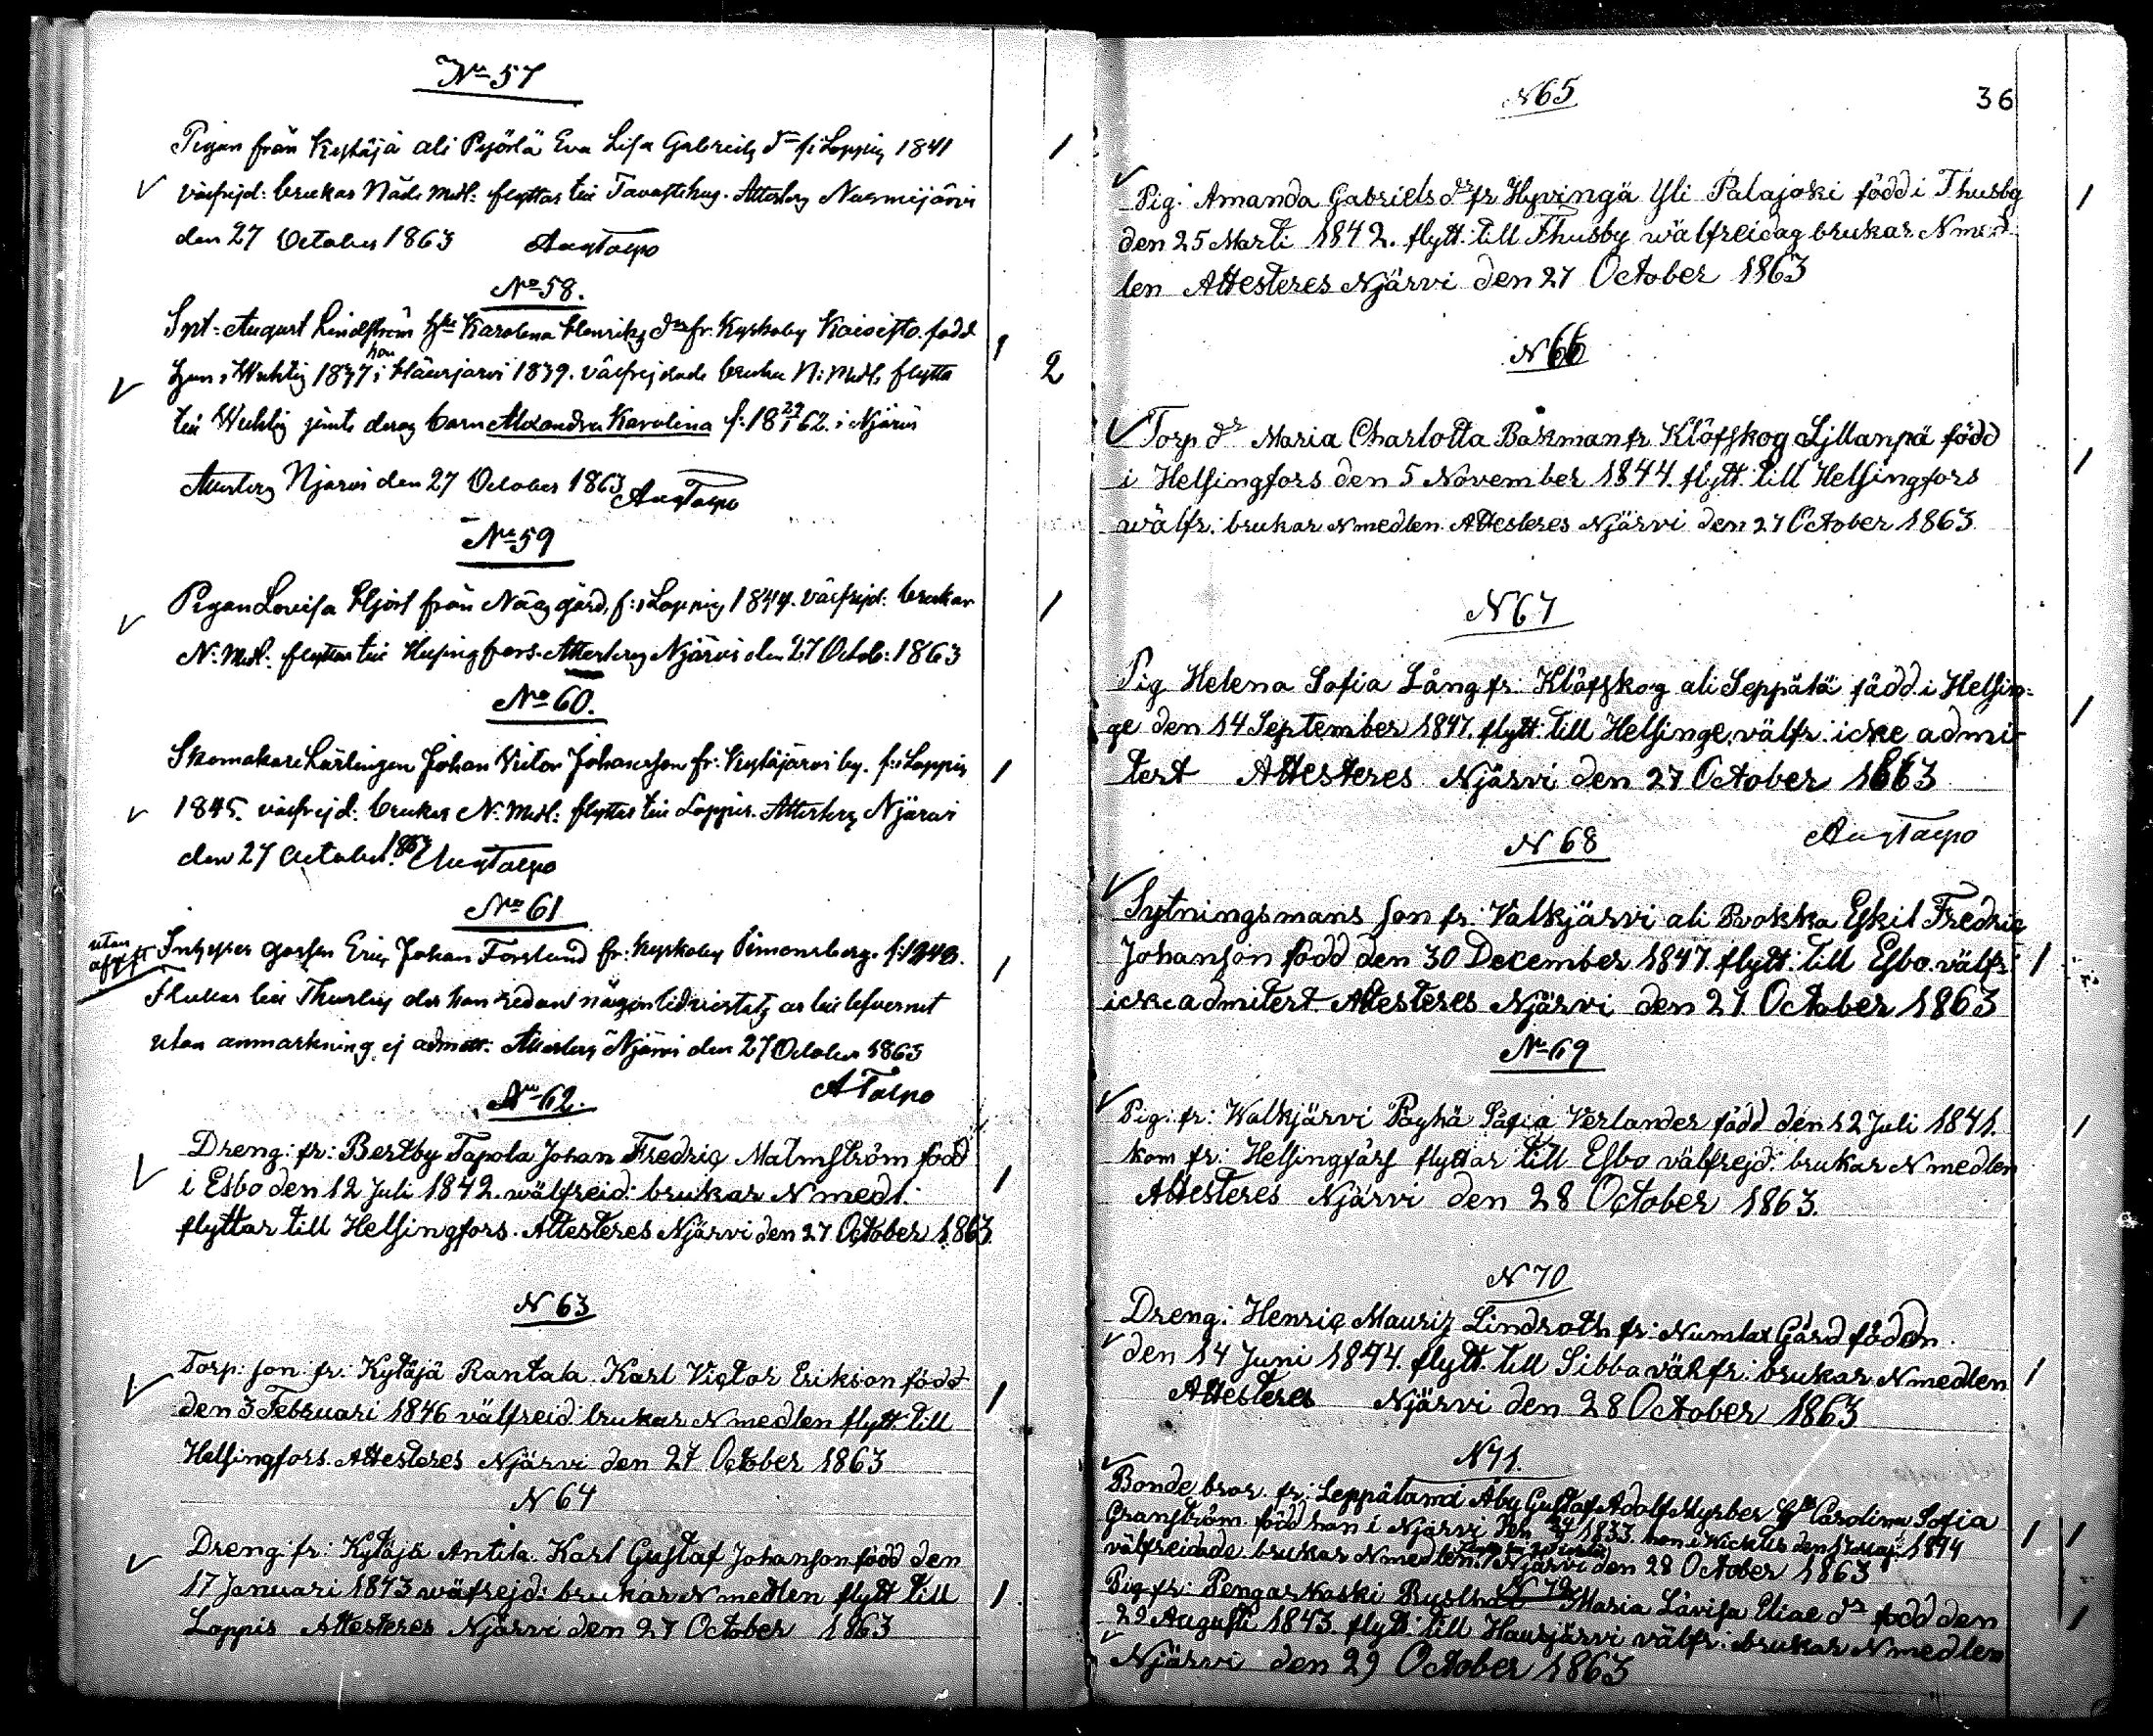 No 57
Pigan från Kytäjä ali Pyörlä Eva Lisa Gabriels dr f: i Loppis 1841
välfrejd: brukar Nåde Medl: flyttar till Tavastehus. Attesteras Nurmijärvi
den 27 October 1863 Aug Talpo
No 58.
Spt: August Lindström hu Karolina Henriks dr fr: Kyrkoby Koivisto. född
han i Wichtis 1837 hon i Hausjärvi 1839. välfrejdade bruka N: Medl. flytta
till Wichtis jämte deras barn Alexandra Karolina f: 18 29/1 62. i Njärvi
Attesteras Njärvi den 27 October 1863 Aug Talpo
No 59
Pigan Lovisa Hjort från Näs gård, f: i Loppis, 1844. välfrejd: brukar
N: Medl. flyttar till Helsingfors. Attesteras Njärvi den 27 Octob: 1863
No 60.
Skomakare Lärlingen Johan Victor Johansson fr: Kytäjärvi by. f: i Loppis
1845. välfrejd: brukar N: Medl: flyttar till Loppis. Attesteras Njärvi
den 27 October 1863 Aug Talpo
No 61
utan
afgift
Inhyses gossen Eric Johan Forslund fr: Kyrkoby Simonsberg. f: 1848.
Flyttar till Thusby der han redan någon tid vistats är till lefvernet
utan anmärkning, ej admitt. Attesteras Njärvi den 27 October 1863
A Talpo
No 62.
Dreng: fr: Bertby Tapola Johan Fredric Malmström född
i Esbo den 12 Juli 1842. wälfreid: brukar N medl:
flyttar till Helsingfors. Attesteres Njärvi den 27 October 1863.
N 63
Torp: son fr: Kytäjä Rantala Karl Victor Erikson född
den 3 Februari 1846 välfreid brukar N medlen flytt: till
Helsingfors. Attesteres Njärvi den 27 October 1863
N 64
Dreng: fr: Kytäjä Antila. Karl Gustaf Johanson född den
17 Januari 1843 wäfrejd: brukar N medlen flytt till
Loppis Attesteres Njärvi den 27 October 1863
36
N 65
Pig: Amanda Gabriels dr fr Hyvingä Yli Palajoki född i Thusby
den 25 Marti 1842. flytt: till Thusby wälfreidag brukar N med
len Attesteres Njärvi den 27 October 1863
N 66
Torp dr Maria Charlotta Bakman fr Klöfskog Sjllanpä född
i Helsingfors den 5 November 1844. flytt: till Helsingfors
wälfr: brukar N medlen Attesteres Njärvi den 27 October 1863
N 67
Pig Helena Sofia Lång fr: Klöfskog ali Seppälä född i Helsin-
ge den 14 September 1847. flytt: till Helsinge. välfr: icke admi-
tert Attesteres Njärvi den 27 October 1863
Aug Talpo
N 68
Sytningsmans son fr: Valkjärvi ali Rokka Eskil Fredric
Johanson född den 30 December 1847. flytt: till Esbo välfr:
icke admitert Attesteres Njärvi den 27 October 1863
No 69
Pig: fr: Walkjärvi Päyhä Sofia Verlander född den 12 Juli 1841.
kom fr: Helsingförs flyttar till Esbo välfrejd: brukar N medlen
Attesteres Njärvi den 28 October 1863.
N 70
Dreng: Henric Mauriz Lindroth fr: Numlax Gård född
den 14 Juni 1844. flytt: till Sibbo välfr: brukar N medlen
Attesteres Njärvi den 28 October 1863
N 71.
Bonde bror fr: Leppälamd Åby Gustaf Adolf Myrber hu Carolina Sofia
Granström. född han i Njärvi 1833. hon i Wichtis den 17 Maj 1844
välfreidade brukar N medlen. Njärvi den 28 October 1863
N 72
Pig fr: Pengar Koski Maria Lävisa Eliae dr född den
29 Augusti 1843. flytt: till Hausjärvi välfr: brukar N medlen
Njärvi den 29 October 1863